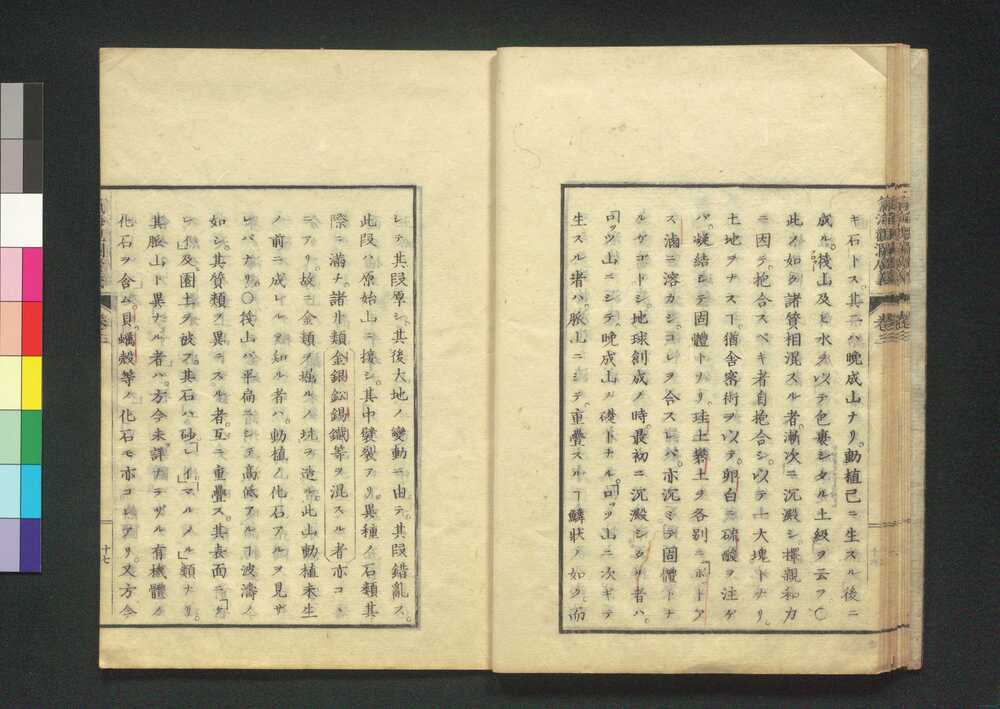 キ石トス。其二ハ晩成山ナリ。動植已ニ生スル後ニ
成ル。筏山及ヒ水ヲ以テ包裹シタル土級ヲ云フ〇
此ノ如ク諸質相混スル者漸次ニ沉澱シ。擇親和力
ニ因テ。抱合スベキ者自抱合シ。以テ一大塊トナリ。
土地ヲナスヿ。猶舎密術ヲ以テ。卵白ニ硫酸ヲ注ゲ
ハ。凝結シテ固體トナリ。珪土礬土ヲ各別ニ「ポトア
ス」滷ニ溶カシ。コレヲ合スレバ。亦沉ミテ固體トナ
ルゲゴトシ。地球創成ノ時。最初ニ沉澱シタル者ハ。
山ニシテ。晩成山ノ礎トナル。山ニ次ギテ
生スル者ハ。脈山ニシテ。重疊スルヿ鱗狀ノ如ク。而
シテ其段厚シ。其後大地ノ變動ニ由テ。其段錯亂ス。
此段ハ原始山ニ接シ。其中䥫裂アリ。異種ノ石類其
際ニ滿ツ。諸金類金銀鉛錫鐵等ヲ混スル者亦コヽ
ニアリ。故ニ金類ヲ堀ルノ坑ヲ造ル。此山動植未生
ノ前ニ成レルヲ知ル者ハ。動植ノ化石アルヲ見ザ
レバナリ。〇筏山ハ平扁ニシテ高低アルヿ波濤ノ
如シ。其質類ヲ異ニスル者。互ニ重疊ス。其表面ニ
及園土ヲ被フ。其石ハ砂レイ」マルメル」類ナリ。
其脈山ト異ナル者ハ。方今未詳ナラザル有機體ノ
化石ヲ含ム。貝。蠣殼等ノ化石モ亦コレアリ。又方今
十七